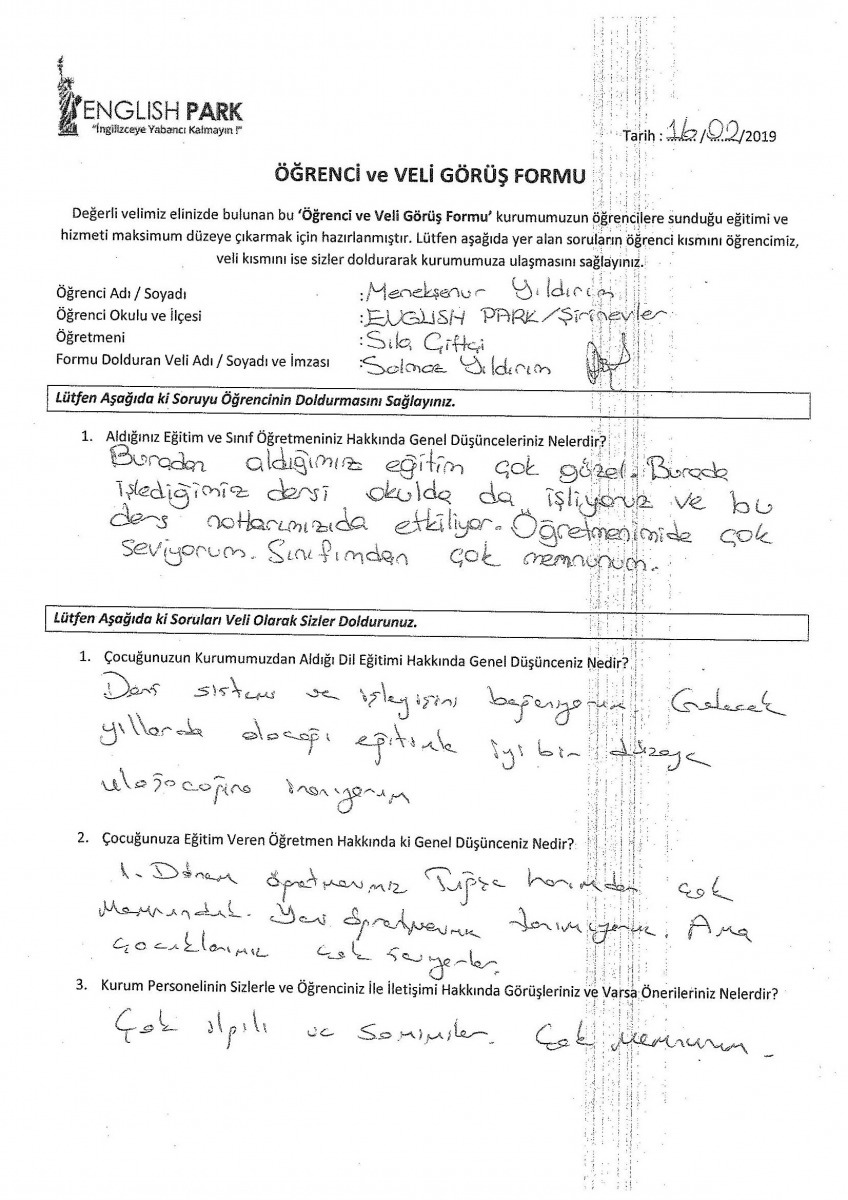 ENGLISH PARK
"İngilizceye Yabancı Kalmayın !"
Tarih : 16/02/2019
ÖĞRENCİ ve VELİ GÖRÜŞ FORMU
Değerli velimiz elinizde bulunan bu 'Öğrenci ve Veli Görüş Formu' kurumumuzun öğrencilere sunduğu eğitimi ve
hizmeti maksimum düzeye çıkarmak için hazırlanmıştır. Lütfen aşağıda yer alan soruların öğrenci kısmını öğrencimiz,
veli kısmını ise sizler doldurarak kurumumuza ulaşmasını sağlayınız.
Öğrenci Adı / Soyadı :Menekşenur Yıldırım
Öğrenci Okulu ve İlçesi :ENGLISH PARK/Şirinevler
Öğretmeni :Sıla Çiftçi
Formu Dolduran Veli Adı / Soyadı ve İmzası :Solmaz Yıldırım
Lütfen Aşağıda ki Soruyu Öğrencinin Doldurmasını Sağlayınız.
1. Aldığınız Eğitim ve Sınıf Öğretmeniniz Hakkında Genel Düşünceleriniz Nelerdir?
Buradan aldığımız eğitim çok güzel. Burada
işlediğimiz dersi okulda da işliyoruz ve bu
ders notlarımızıda etkiliyor. Öğretmenimide çok
seviyorum. Sınıfımdan çok memnunum.
Lütfen Aşağıda ki Soruları Veli Olarak Sizler Doldurunuz.
1. Çocuğunuzun Kurumumuzdan Aldığı Dil Eğitimi Hakkında Genel Düşünceniz Nedir?
Ders sistemi ve işleyişini beğeniyorum. Gelecek
yıllarda alacağı eğitimle iyi bir düzeye
ulaşacağına inanıyorum
2. Çocuğunuza Eğitim Veren Öğretmen Hakkında ki Genel Düşünceniz Nedir?
1. Dönem öğretmenimiz Tuğçe hanımdan çok
memnunduk. Yeni öğretmenini tanımıyorum. Ama
çocuklarımız çok seviyorlar.
3. Kurum Personelinin Sizlerle ve Öğrenciniz İle İletişimi Hakkında Görüşleriniz ve Varsa Önerileriniz Nelerdir?
Çok ilgili ve samimiler. Çok memnunum.